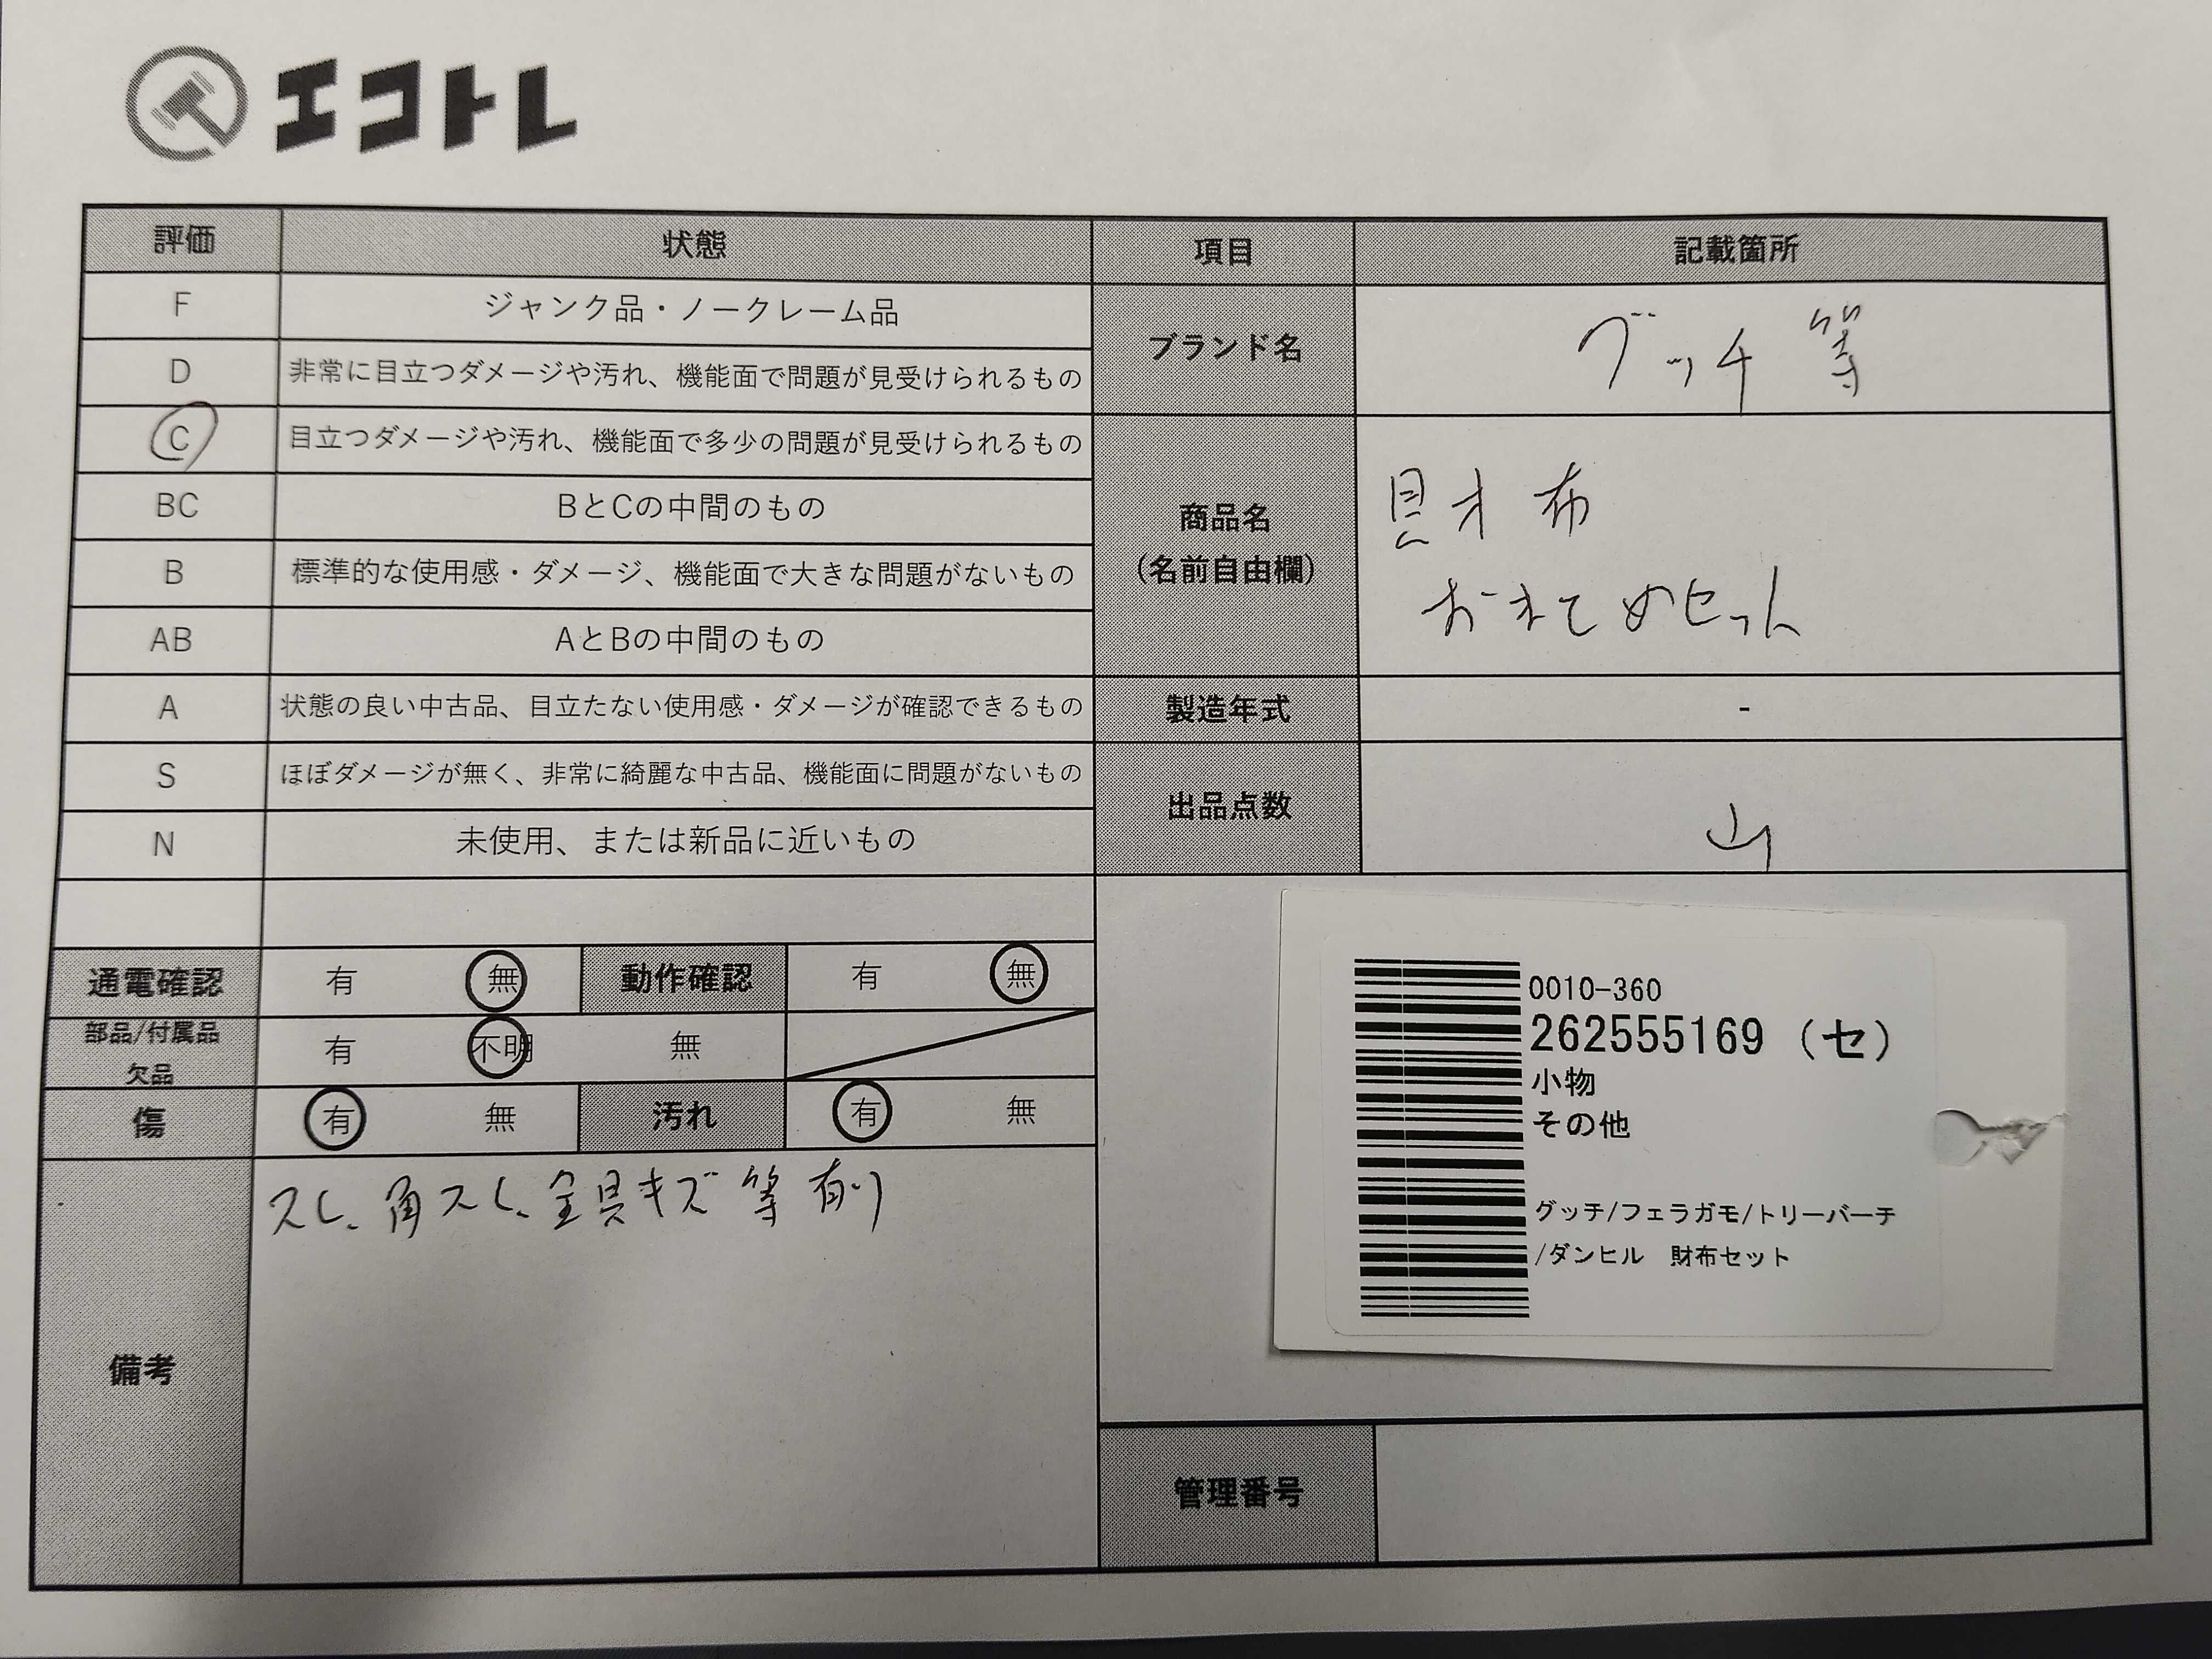 エコトレ
評価 状態 項目 記載箇所
F ジャンク品・ノークレーム品
D 非常に目立つダメージや汚れ、機能面で問題が見受けられるもの
ブランド名 グッチ 等
C 目立つダメージや汚れ、機能面で多少の問題が見受けられるもの
BC BとCの中間のもの
B 標準的な使用感・ダメージ、機能面で大きな問題がないもの
AB AとBの中間のもの
商品名
(名前自由欄)
財布
おまとめセット
A 状態の良い中古品、目立たない使用感・ダメージが確認できるもの
製造年式 -
S ほぼダメージが無く、非常に綺麗な中古品、機能面に問題がないもの
N 未使用、または新品に近いもの
出品点数 山
通電確認 有 無 動作確認 有 無
部品/付属品
欠品
有 不明 無
傷 有 無 汚れ 有 無
備考
スレ、角スレ、金具キズ等有り
0010-360
262555169 (セ)
小物
その他
グッチ/フェラガモ/トリーバーチ
/ダンヒル 財布セット
管理番号